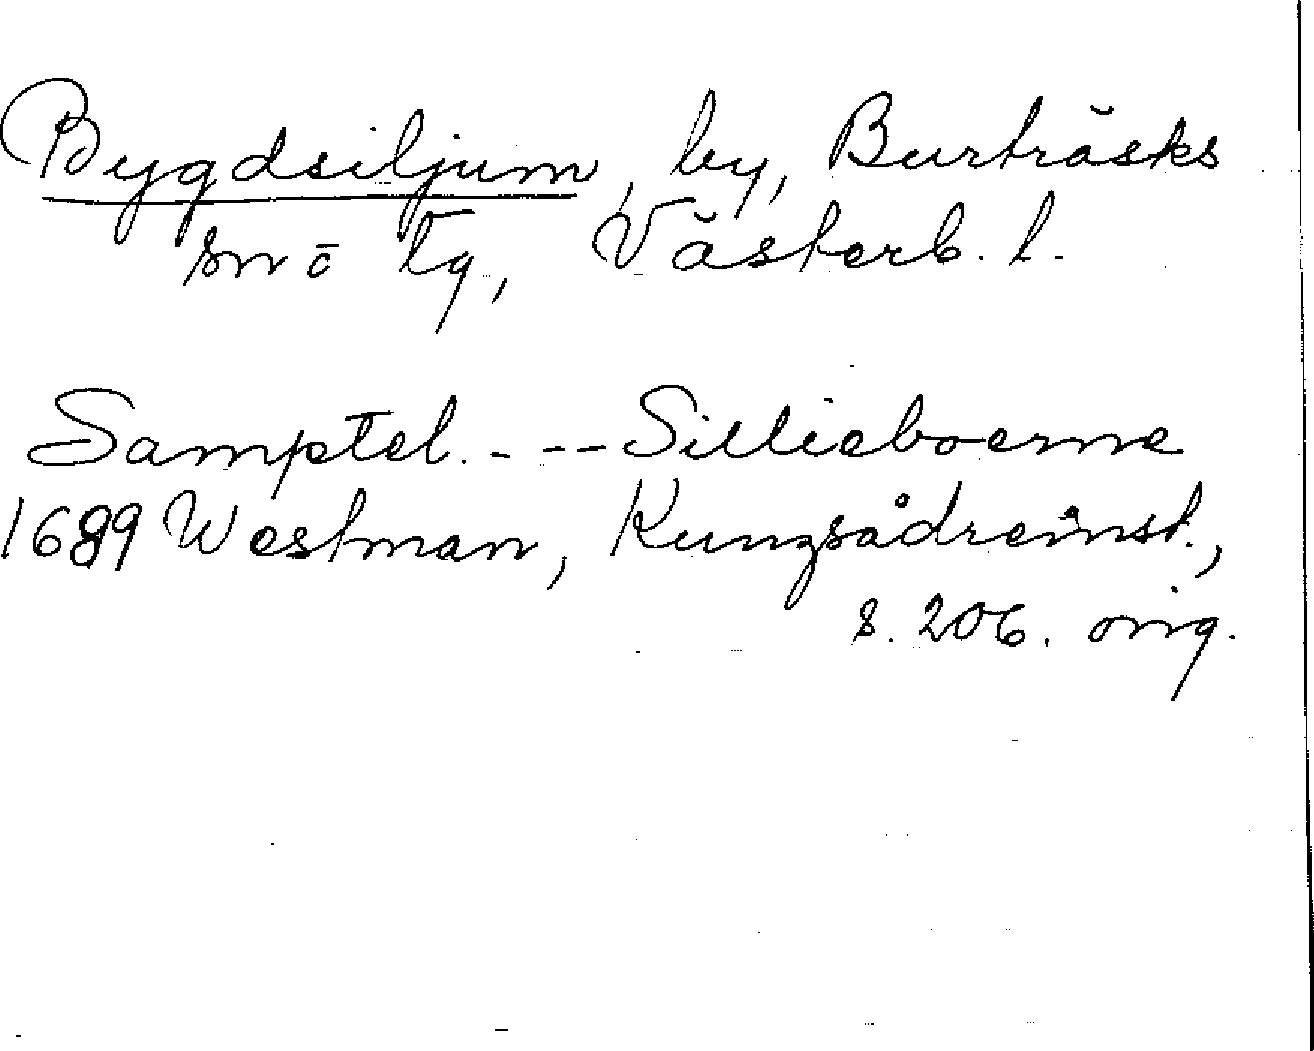 Bygdsiljum, by, Burträsks
sn o tg, Västerb. l.
Samptel. - -- Sillieboerne
1689 Westman, Kungsådreinst.,
s. 206. orig.